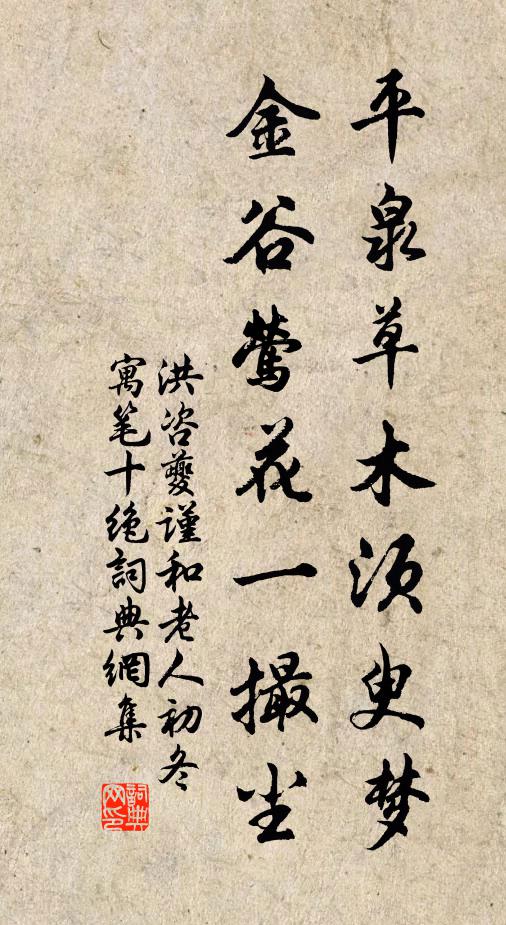 平泉草木须臾梦
金谷莺花一撮尘
洪咨夔谨和老人初冬
寓笔十绝詞典網集
詞典
网印